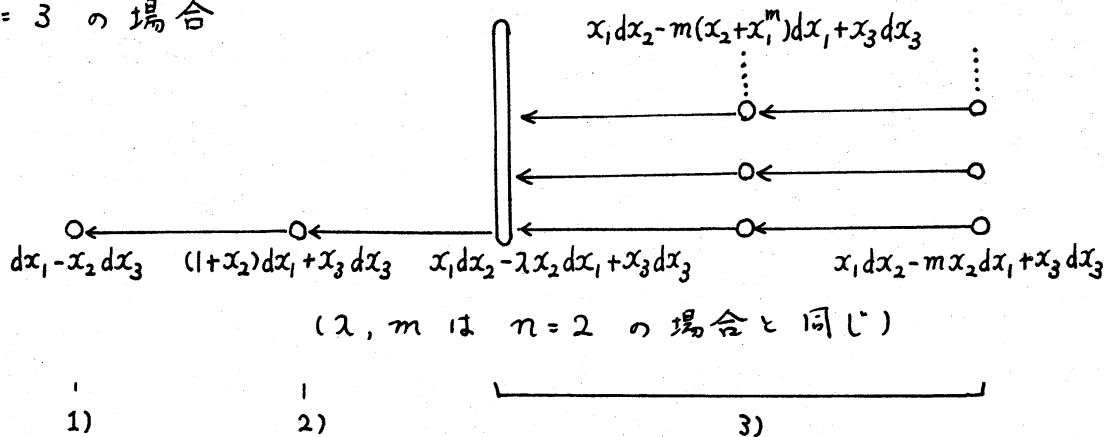 = 3 の場合
x₁dx₂-m(x₂+x₁ᵐ)dx₁+x₃dx₃
dx₁-x₂dx₃ (1+x₂)dx₁+x₃dx₃ x₁dx₂-λx₂dx₁+x₃dx₃ x₁dx₂-mx₂dx₁+x₃dx₃
(λ, m は n=2 の場合と同じ)
1) 2) 3)